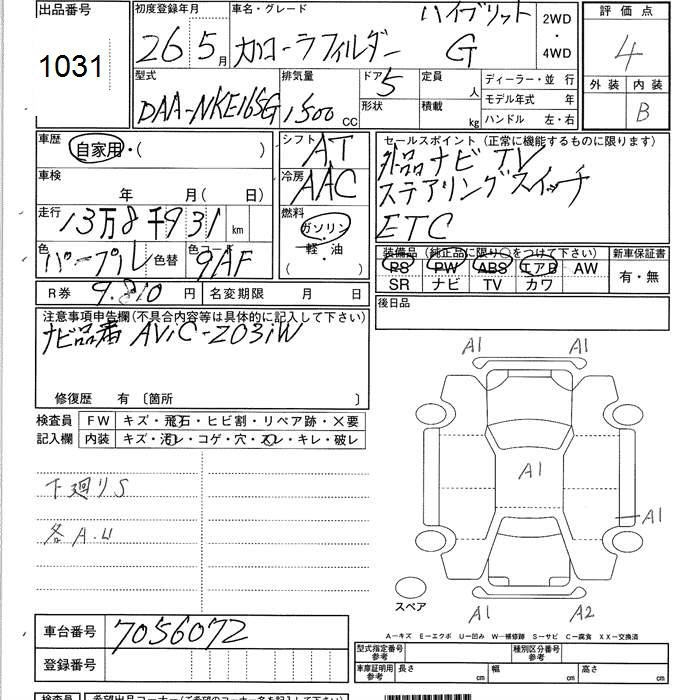 出品番号
1031
初度登録年月
26 5月
車名・グレード
ハイブリット
カローラフィルダー G
2WD
・
4WD
評価点
4
外装 内装
B
型式
DAA-NKE165G
排気量
1500 cc
ドア 5
形状
定員 人
積載 kg
ディーラー・並行
モデル年式 年
ハンドル 左・右
車歴
自家用・( )
シフト AT
冷房 AAC
車検
年 月( 日)
走行
13万8千931 km
燃料
ガソリン
・
軽・油
( )
色
パープル
色替
色コード
9AF
R券 9.810円
名変期限 月 日
セールスポイント(正常に機能するものに限ります)
外品ナビ TV
ステアリングスイッチ
ETC
装備品(純正品に限り○をつけて下さい)
PS PW ABS エアB AW
SR ナビ TV カワ
新車保証書
有・無
後日品
注意事項申告欄(不具合内容等は具体的に記入して下さい)
ナビ品番 AVIC-ZO3iW
修復歴 有〔箇所 〕
検査員
記入欄
FW キズ・飛石・ヒビ割・リペア跡・×要
内装 キズ・汚レ・コゲ・穴・スレ・キレ・破レ
下廻りS
各A.U
A1 A1
A1
A1
A1 A2
スペア
A-キズ E-エクボ U-凹み W-補修跡 S-サビ C-腐食 XX-交換済
車台番号 7056072
登録番号
型式指定番号
参考
種別区分番号
参考
車庫証明用
参考
長さ cm 幅 cm 高さ cm
検査員
希望出品コーナー(ご希望のコーナー名を記入下さい)